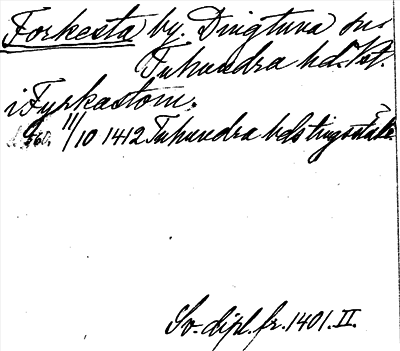 Forkesta by. Dingtuna sn.
Tuhundra hd. Vst.
i Fyrkastom.
11/10 1412 Tuhundra hds tingställe
Sv. dipl. fr. 1401. II.